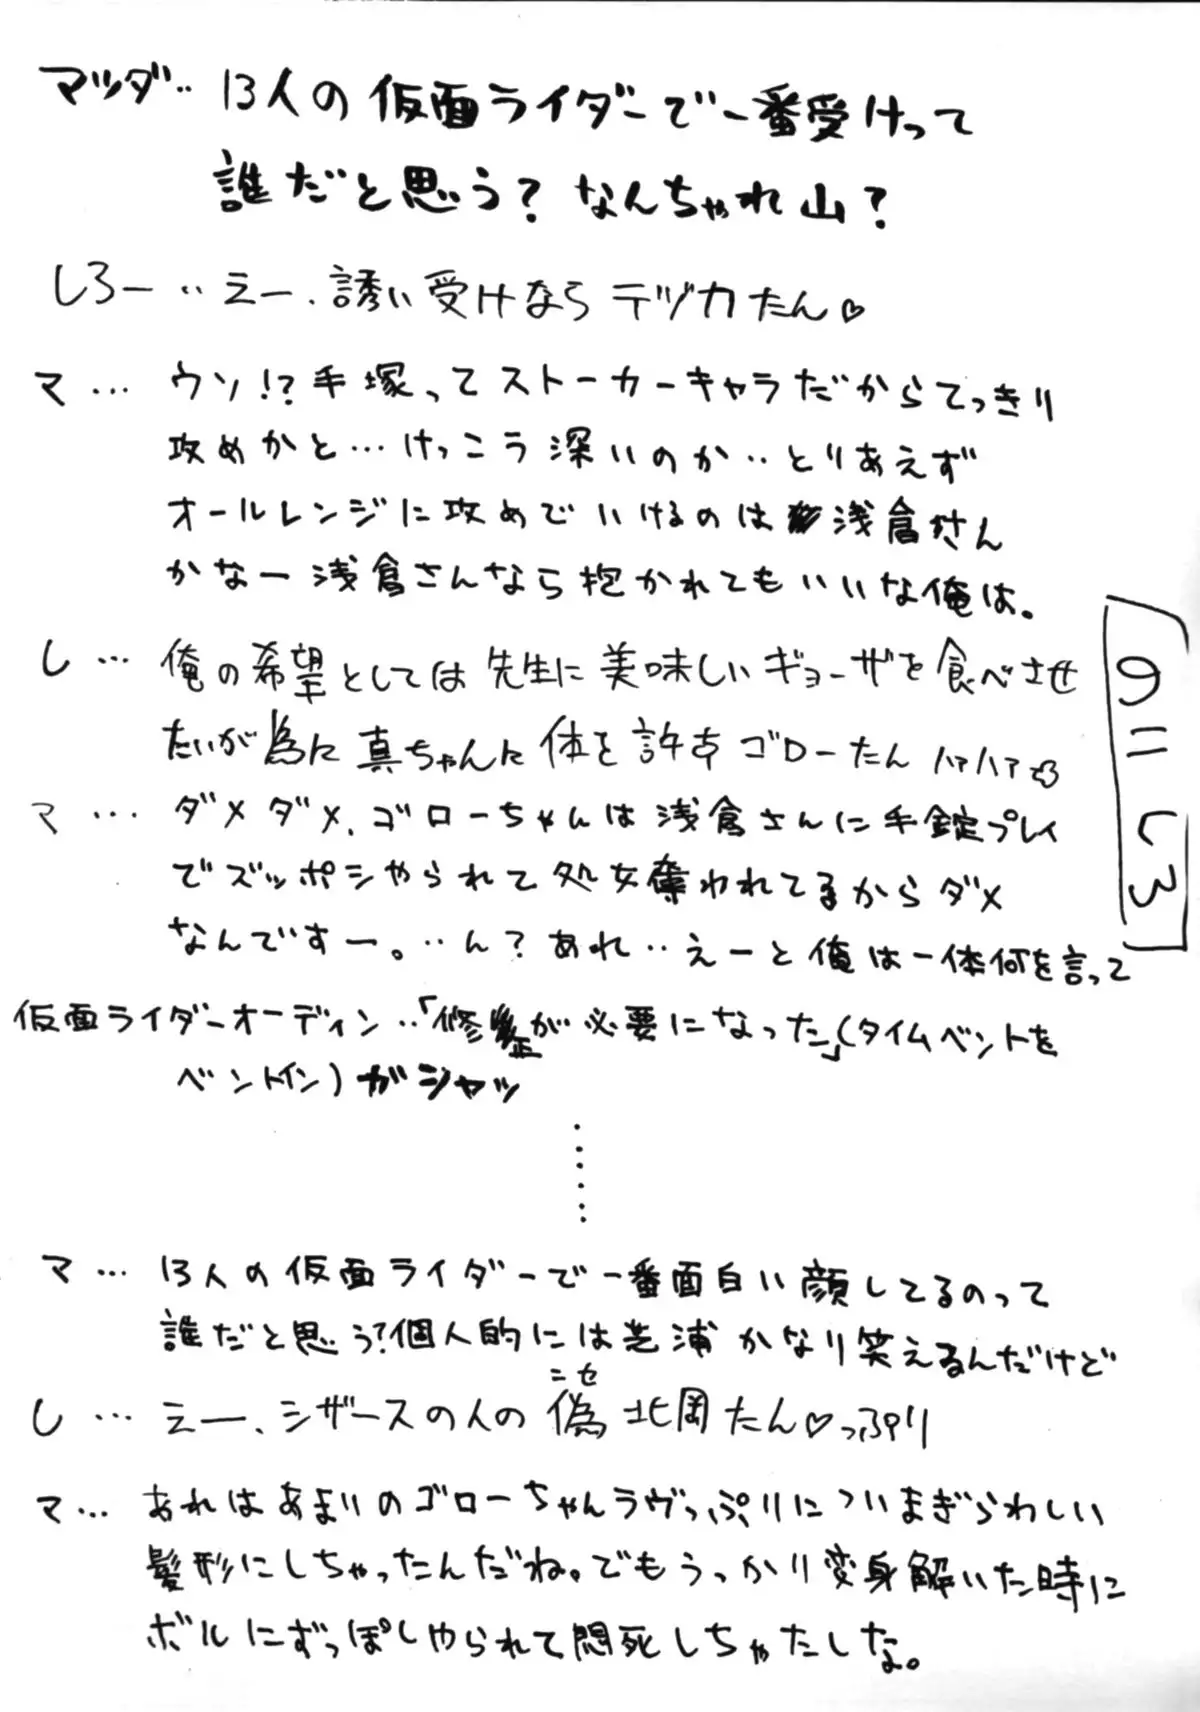 マツダ‥13人の仮面ライダーで一番受けって
誰だと思う？なんちゃれ山？
しろー‥えー、誘い受けならテヅカたん♡
マ…ウソ!?手塚ってストーカーキャラだからてっきり
攻めかと…けっこう深いのか‥とりあえず
オールレンジに攻めでいけるのは浅倉さん
かなー浅倉さんなら抱かれてもいいな俺は。
し…俺の希望としては先生に美味しいギョーザを食べさせ
たいが為に真ちゃんに体を許すゴローたんハァハァ
マ…ダメダメ、ゴローちゃんは浅倉さんに手錠プレイ
でズッポシやられて処女奪われてるからダメ
なんですー。‥ん？あれ‥えーと俺は一体何を言って
仮面ライダーオーディン‥「修正が必要になった」(タイムベントを
ベントイン)ガシャッ
……
マ…13人の仮面ライダーで一番面白い顔してるのって
誰だと思う？個人的には芝浦かなり笑えるんだけど
し…えー、シザースの人の偽北岡たん♡っぷり
ニセ
マ…あれはあまりのゴローちゃんラヴっぷりについまぎらわしい
髪形にしちゃったんだね。でもうっかり変身解いた時に
ボルにずっぽしやられて悶死しちゃたしな。
の＝しろ